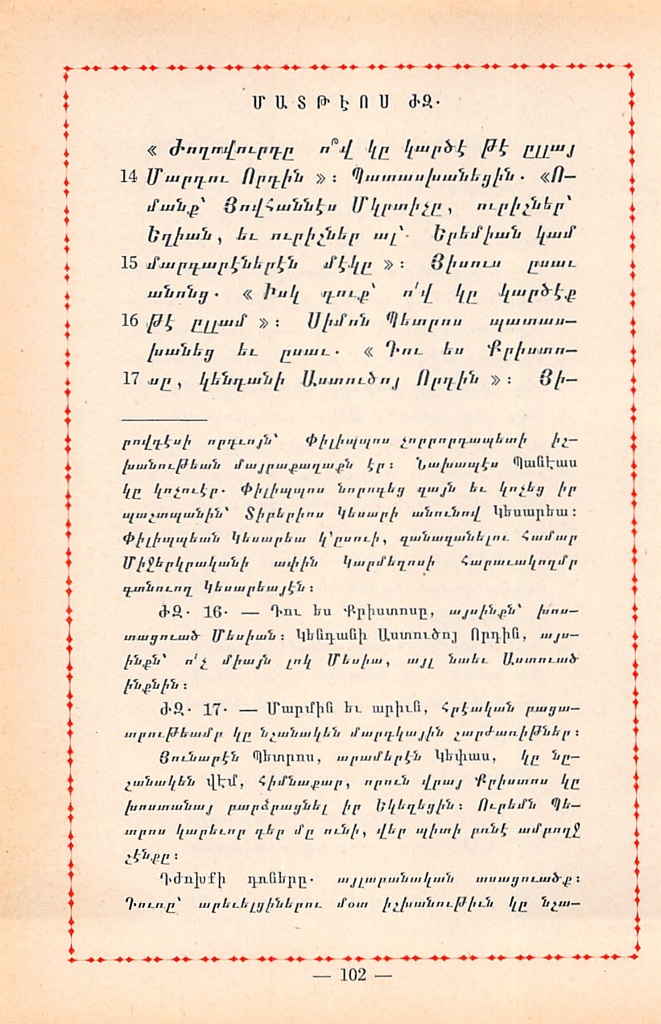 ՄԱՏԹԷՈՍ ԺԶ.
« Ժողովուրդը ո՞վ կը կարծէ թէ ըլլայ
14 Մարդու Որդին »։ Պատասխանեցին. «Ո-
մանք՝ Յովհաննէս Մկրտիչը, ուրիշներ՝
Եղիան, եւ ուրիշներ ալ՝ Երեմիան կամ
15 մարդարէներէն մէկը »։ Յիսուս ըսաւ
անոնց. « Իսկ դուք՝ ո՛վ կը կարծէք
16 թէ ըլլամ »։ Սիմոն Պետրոս պատաս-
խանեց եւ ըսաւ. « Դու ես Քրիստո-
17 սը, կենդանի Աստուծոյ Որդին »։ Յի-
րովդէսի որդւոյն՝ Փիլիպպոս չորրորդապետի իշ-
խանութեան մայրաքաղաքն էր։ Նախապէս Պանէաս
կը կոչուէր. Փիլիպպոս նորոգեց զայն եւ կոչեց իր
պաշտպանին՝ Տիբերիոս Կեսարի անունով Կեսարեա։
Փիլիպպեան Կեսարեա կ՚ըսուի, զանազանելու համար
Միջերկրականի ափին Կարմեղոսի հարաւակողմը
գտնուող Կեսարեայէն։
ԺԶ. 16. — Դու ես Քրիստոսը, այսինքն՝ խոս-
տացուած Մեսիան։ Կենդանի Աստուծոյ Որդին, այս-
ինքն՝ ո՛չ միայն լոկ Մեսիա, այլ նաեւ Աստուած
ինքնին։
ԺԶ. 17. — Մարմին եւ արիւն, հրէական բացա-
տրութեամբ կը նշանակեն մարդկային չարժառիթներ։
Յունարէն Պետրոս, արամերէն Կեփաս, կը նը-
շանակեն վէմ, հիմնաքար, որուն վրայ Քրիստոս կը
խոստանայ բարձրացնել իր Եկեղեցին։ Ուրեմն Պե-
տրոս կարեւոր դեր մը ունի, վեր պիտի բռնէ ամբողջ
շէնքը։
Դժոխքի դռները. այլաբանական ասացուածք։
Դուռը՝ արեւելցիներու մօտ իշխանութիւն կը նշա-
— 102 —